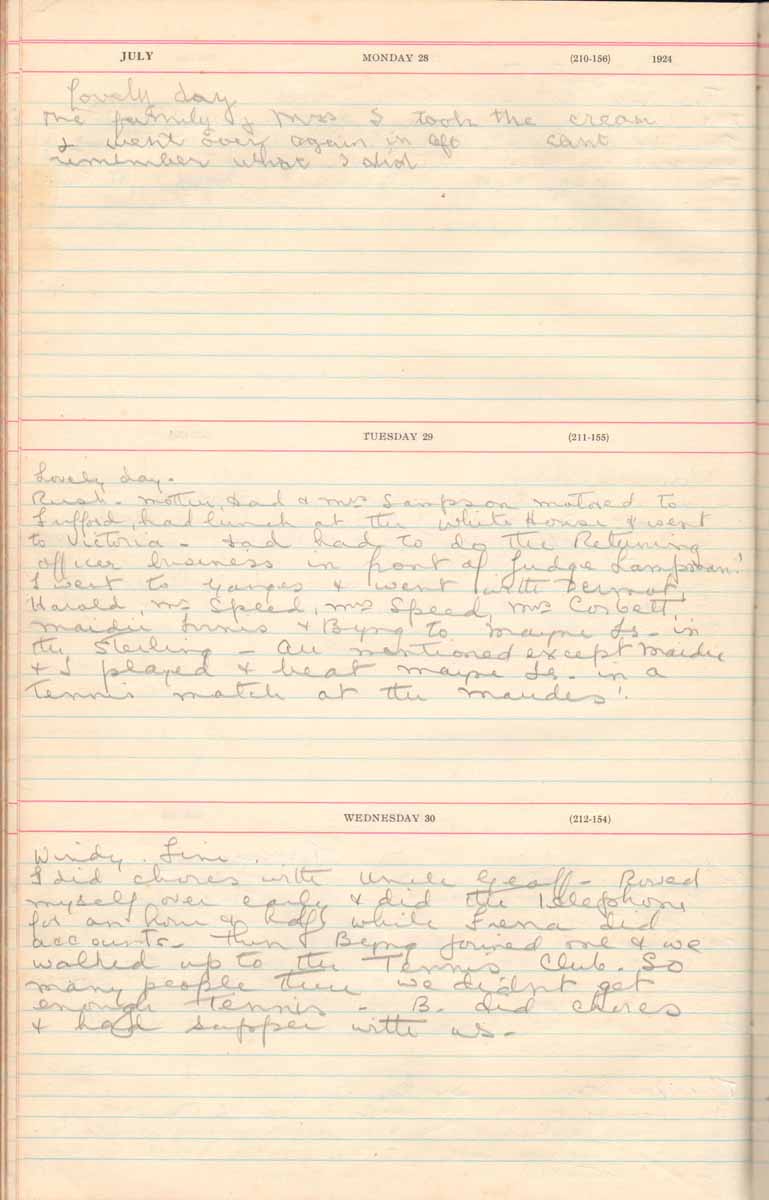 JULY MONDAY 28 (210-156) 1924
Lovely day
The family & Mrs S took the cream
I went over again in aft cant
remember what I did
TUESDAY 29 (211-155)
Lovely day.
Rush. Mother, Dad & Mrs Sampson motored to
Fulford, had lunch at the White House & went
to Victoria - Dad had to do the Returning
officer business in front of Judge Lampman!
I went to Ganges & went with Dermot,
Harold, Mr Speed, Mrs Speed, Mrs Corbett,
& Byng to Mayne Is. in
the Sterling - All mentioned except Maidie
& I played & beat Mayne Is. in a
Tennis match at the Maudes!
WEDNESDAY 30 (212-154)
Windy. Fine.
I did chores with Uncle Geoff - Rowed
myself over early & did the Telephone
for an hour & half while did
accounts - Then Byng joined me & we
walked up to the Tennis Club. So
many people there we didn't get
enough Tennis - B. did chores
& had supper with us -